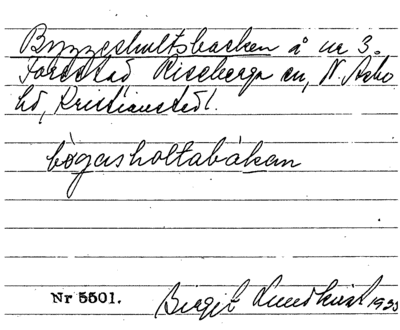 Byggeshultsbacken å nr 3.
Forestad Riseberga sn, N. Åsbo
hd, Kristianst. l.
bògasholtabákan
Nr 5501. Birgit Lundkvist 1935